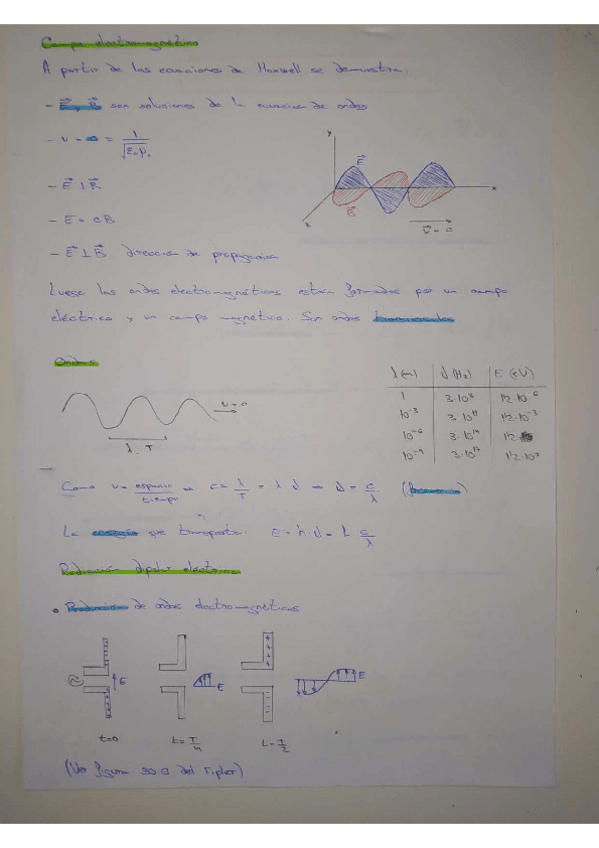 Campo electromagnético
A partir de las ecuaciones de Maxwell se demuestra:
- E⃗ y B⃗ son soluciones de la ecuación de ondas
- v = = 1/√(ε₀μ₀)
- E⃗ ⊥ B⃗
- E = cB
- E⃗ ⊥ B⃗ dirección de propagación
y
E⃗
B⃗
x
z
v⃗ = c
Luego las ondas electromagnéticas están formadas por un campo
eléctrico y un campo magnético. Son ondas transversales
Ondas
v=c
λ, T
λ (m) ν (Hz) E (eV)
1 3·10⁸ 1'2·10⁻⁶
10⁻³ 3·10¹¹ 1'2·10⁻³
10⁻⁶ 3·10¹⁴ 1'2
10⁻⁹ 3·10¹⁷ 1'2·10³
Como v = espacio/tiempo ⇒ c = λ/T = λ ν ⇒ ν = c/λ
La energía que transporta: E = h·ν = h c/λ
Radiación dipolar eléctrica
• Producción de ondas electromagnéticas
E
E
E
t=0 t=T/4 t=T/2
(Ver figura 30.8 del Tipler)